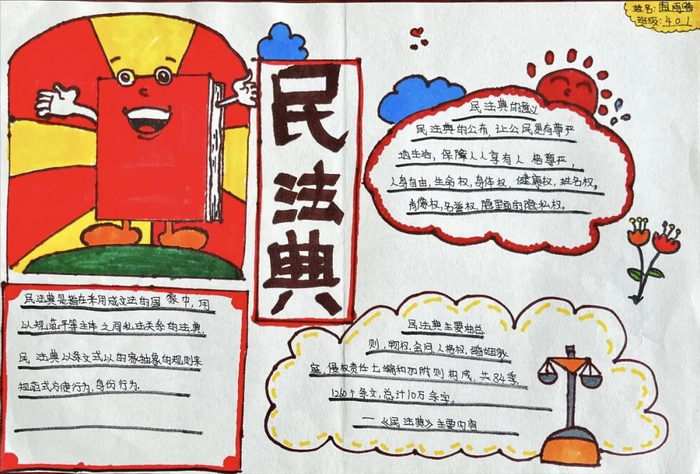 姓名:
班级:401
民法典
民法典的意义
民法典的公布,让公民更有尊严
地生活,保障人人享有人格尊严,
人身自由,生命权,身体权,健康权,姓名权。
肖像权,名誉权,隐私权。
民法典是指在采用成文法的国家中,用
以规范平等主体之间私法关系的法典
民法典以条文式以抽象的规则来
规范式方便行为,身份行为.
民法典主要由总
则,物权,合同人格权,婚姻家
侵权责任七编和附则构成,共84章,
1260个条文,总计10万余字,
—《民法典》主要内容